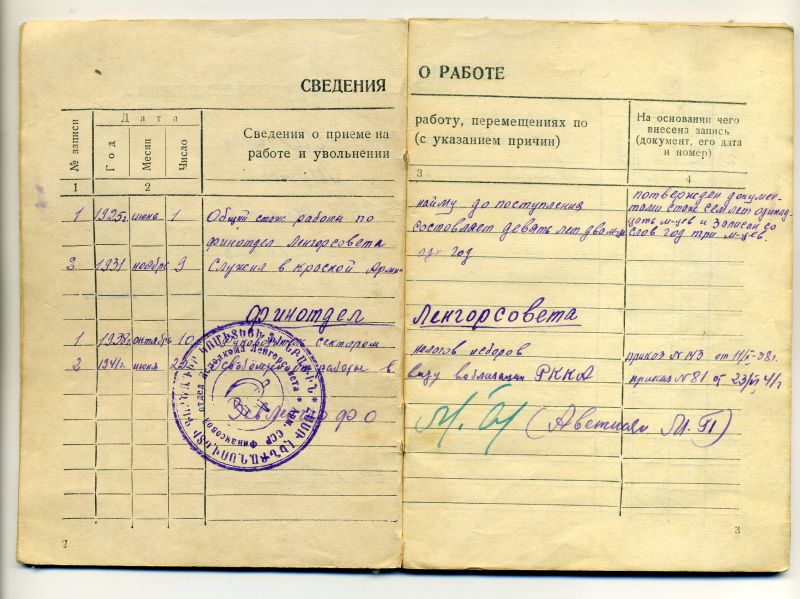 СВЕДЕНИЯ О РАБОТЕ
№ записи
Дата
Год
Месяц
Число
Сведения о приеме на работу, перемещениях по
работе и увольнении (с указанием причин)
На основании чего
внесена запись
(документ, его дата
и номер)
1 2 3 4
1 1925г. июнь 1 Общий стаж работы по найму до поступления
финотдел Ленгорсовета составляет девять лет два м-ца
потвержден докумен-
тами стаж семь лет одинад-
цать м-цев и записан со
слов год три м-цев.
2 1931 ноябрь 9 Служил в красной Армии один год
Финотдел Ленгорсовета
1 1938г. октябрь 10 сектором
налогов и сборов
приказ № 143 от
2 1941г. июня 23 работы в
виду мобилизации РККА
приказ № 81 от 23/VI, 41г
(Аветисян М. П)
Финансовый отдел исполкома Ленгорсовета * Арм. ССР
2
3